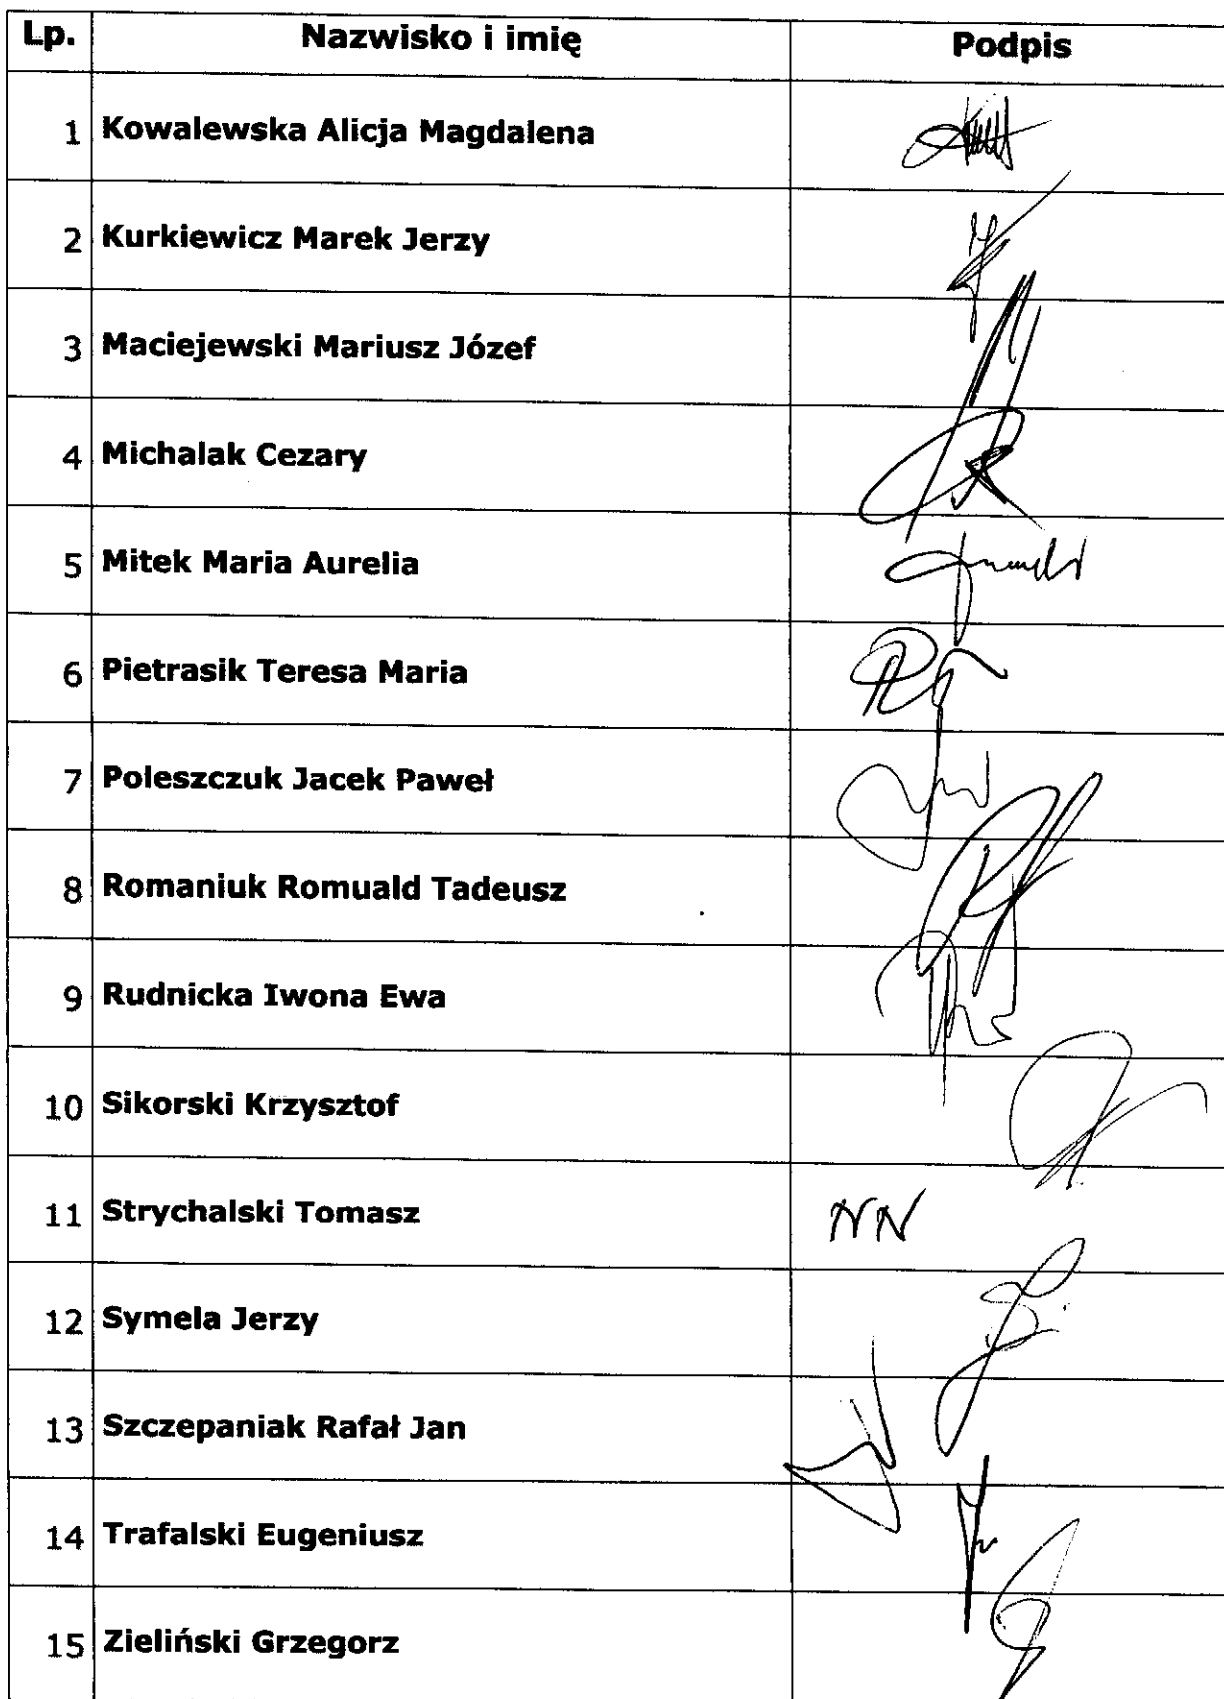 Lp. Nazwisko i imię Podpis
1 Kowalewska Alicja Magdalena
2 Kurkiewicz Marek Jerzy
3 Maciejewski Mariusz Józef
4 Michalak Cezary
5 Mitek Maria Aurelia
6 Pietrasik Teresa Maria
7 Poleszczuk Jacek Paweł
8 Romaniuk Romuald Tadeusz
9 Rudnicka Iwona Ewa
10 Sikorski Krzysztof
11 Strychalski Tomasz NN
12 Symela Jerzy
13 Szczepaniak Rafał Jan
14 Trafalski Eugeniusz
15 Zieliński Grzegorz